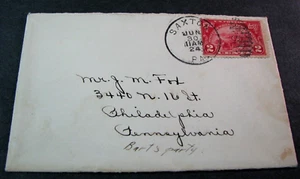 SAXTON
JUN
30
11 AM
24
PA.
2 2
Mr. J. M. Fox
3440 N. 16 St.
Philadelphia
Pennsylvania
Bart's party.